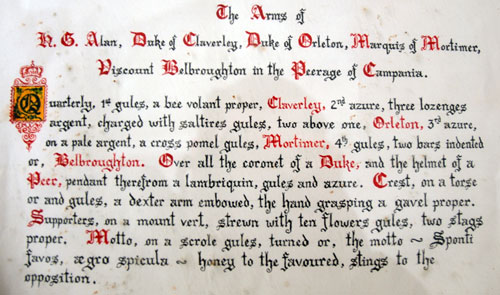 The Arms of
H. G. Alan, Duke of Claverley, Duke of Orleton, Marquis of Mortimer,
Viscount Belbroughton in the Peerage of Campania.
Quarterly, 1st gules, a bee volant proper, Claverley, 2nd azure, three lozenges
argent, charged with saltires gules, two above one, Orleton, 3rd azure,
on a pale argent, a cross pomel gules, Mortimer, 4th gules, two bars indented
or, Belbroughton. Over all the coronet of a Duke, and the helmet of a
Peer, pendant therefrom a lambriquin, gules and azure. Crest, on a torse
or and gules, a dexter arm embowed, the hand grasping a gavel proper.
Supporters, on a mount vert, strewn with ten flowers gules, two stags
proper. Motto, on a scrole gules, turned or, the motto ~ Sponti
favos, ægro spicula ~ honey to the favoured, stings to the
opposition.